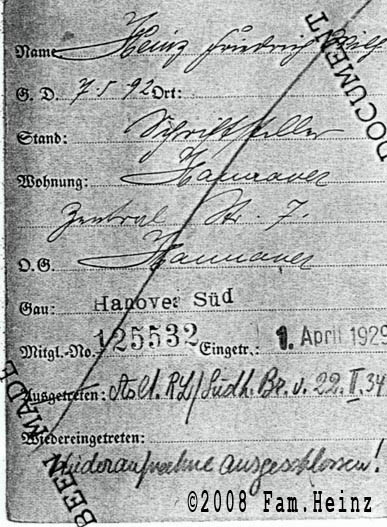 Name Heinz Friedrich Wilh
G. D. 7.5 92 Ort:
Stand: Schriftsteller
Wohnung: Hannover
Zentral Str. 7.
O.G. Hannover
Gau: Hanover Süd
Mitgl.-No. 125532 Eingetr.: 1. April 1929
Ausgetreten: RL/Südh. Br. v. 22. II. 34
Wiedereingetreten:
Wiederaufnahme ausgeschlossen!
BEEN MADE
DOCUMENT
©2008 Fam.Heinz